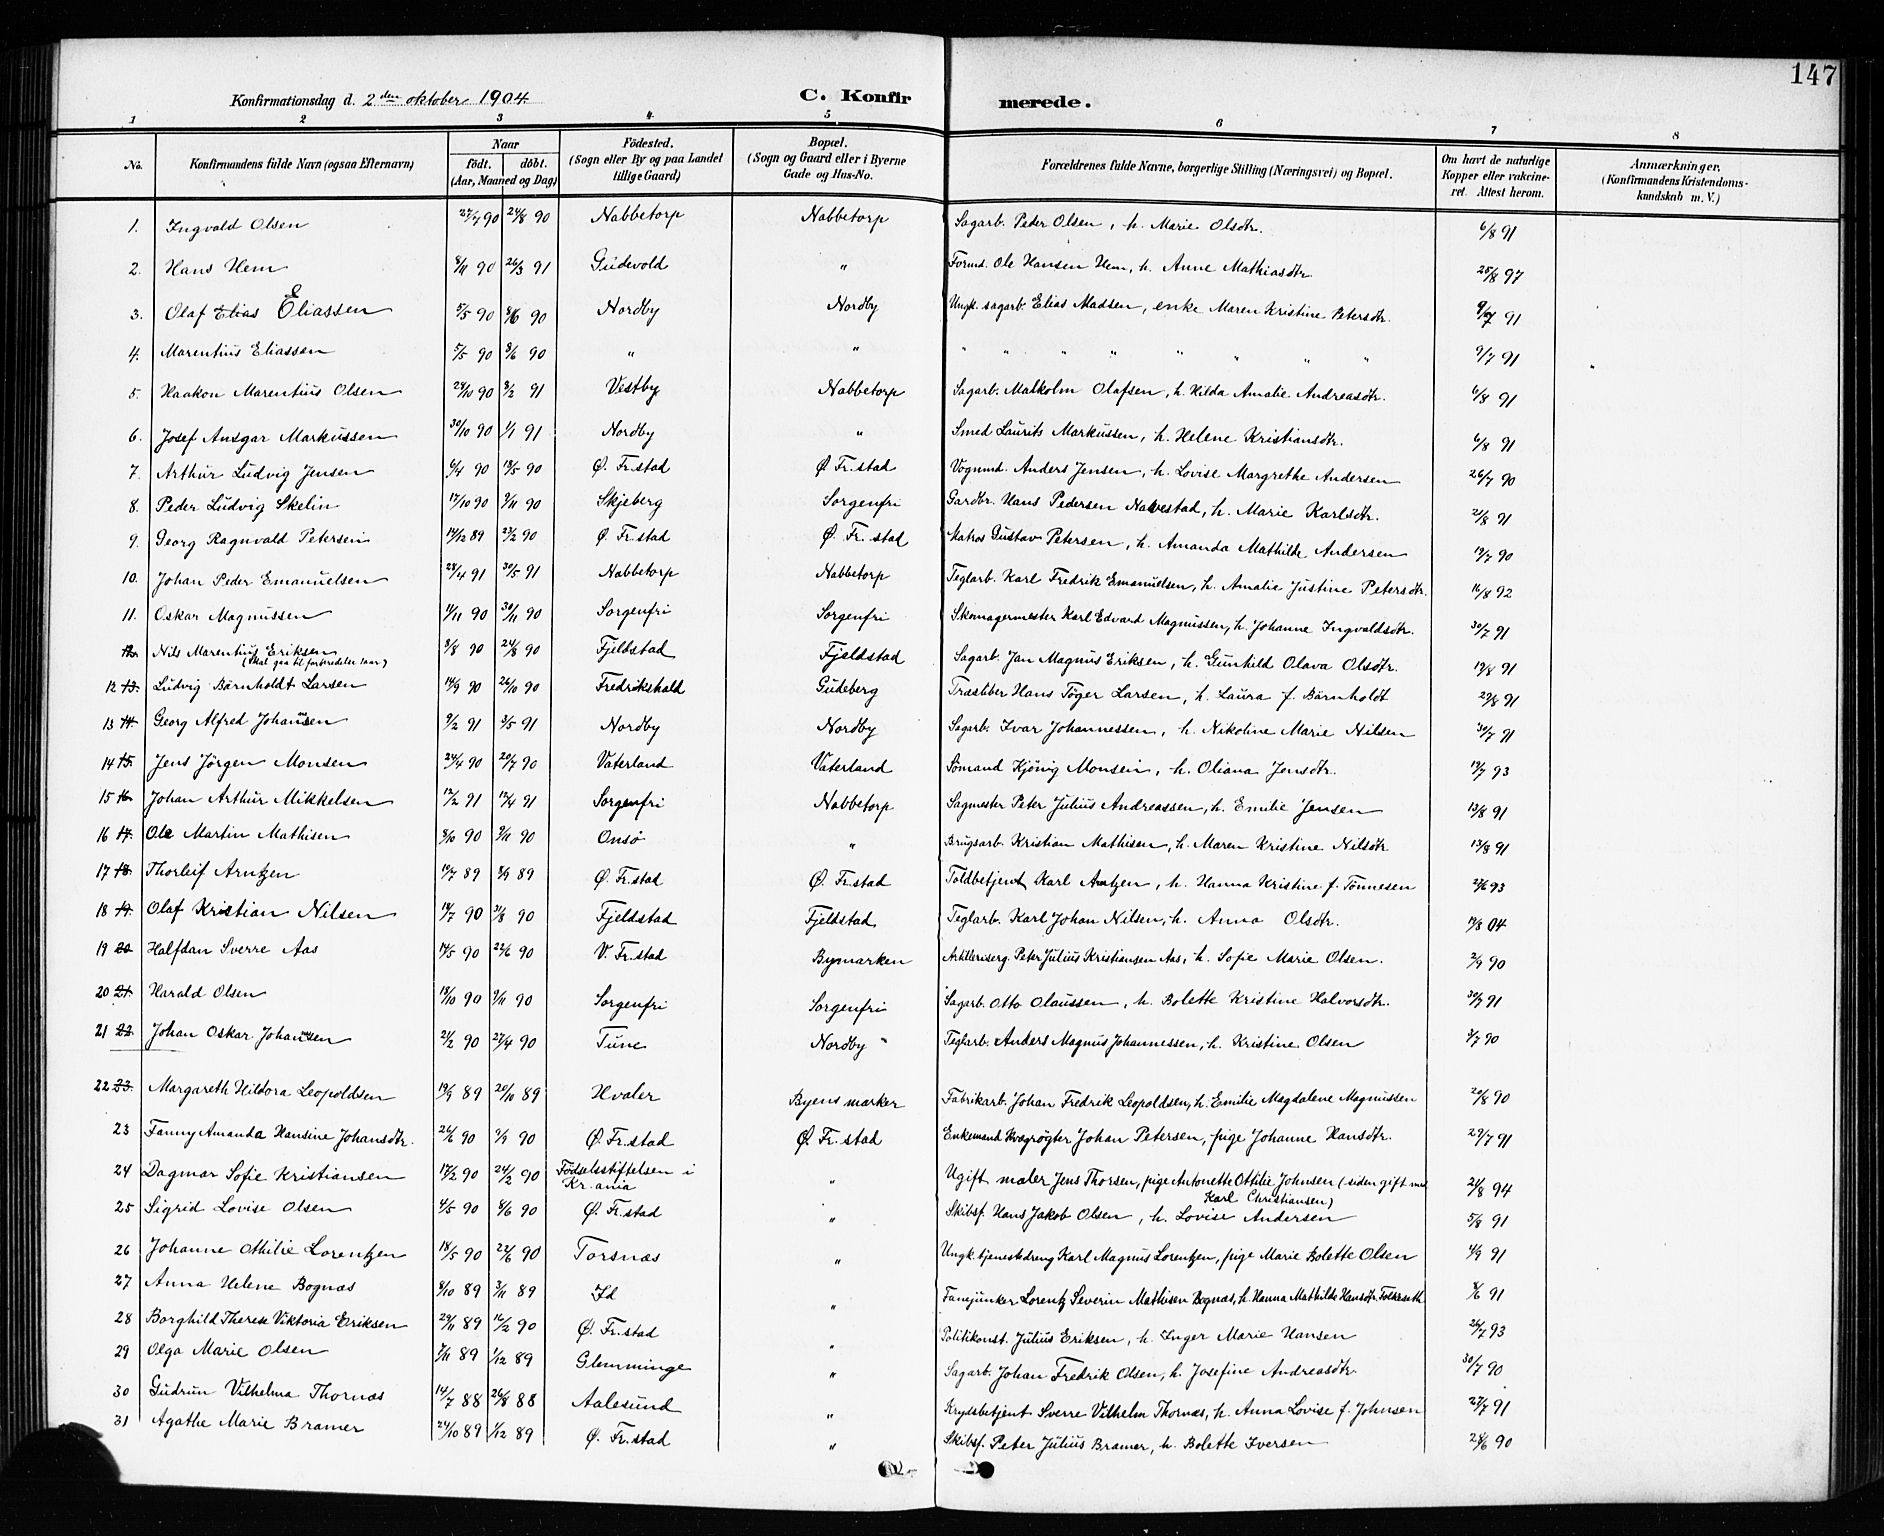 147
Konfirmationsdag d. 2den oktober 1904. C. Konfirmerede.
1 2 3 4. 5 6 7 8
No. Konfirmandens fulde Navn (ogsaa Efternavn) Naar født. døbt. (Aar, Maaned og Dag) Fødested. (Sogn eller By og paa Landet tillige Gaard) Bopæl. (Sogn og Gaard eller i Byerne Gade og Hus-No. Forældrenes fulde Navne, borgerlige Stilling (Næringsvei) og Bopæl. Om havt de naturlige Kopper eller vakcineret. Attest herom. Anmærkninger. (Konfirmandens Kristendomskundskab m. V.)
1. Ingvald Olsen 27/7 90 24/8 90 Nabbetorp Nabbetorp Sagarb. Peter Olsen, h. Marie Olsdtr. 6/8 91
2. Hans Hem 8/11 90 26/3 91 Gudevold " Formd. Ole Hansen Hem, h. Anne Mathiasdtr 25/8 97
3. Olaf Elias Eliassen 5/5 90 8/6 90 Nordby Nordby Ungk. sagarb. Elias Madsen, enke Maren Kristine Petersdtr. 9/7 91
4. Marentius Eliassen 5/5 90 8/6 90 " " " " " " " " " " 9/7 91
5. Haakon Marentius Olsen 24/10 90 8/2 91 Vestby Nabbetorp Sagarb. Malkolm Olafsen, h. Hilda Amalie Andreasdtr. 6/8 91
6. Josef Ansgar Markussen 30/10 90 1/1 91 Nordby " Smed Laurits Markussen, h. Helene Kristiansdtr. 6/8 91
7. Arthur Ludvig Jensen 6/4 90 18/5 90 Ø. Fr.stad Ø Fr.stad Vognmd. Anders Jensen, h. Lovise Margrethe Andersen 26/7 90
8. Peder Ludvig Skelin 17/10 90 9/11 90 Skjeberg Sorgenfri Gardbr. Hans Pedersen Navestad, h. Marie Karlsdtr. 21/8 91
9. Georg Ragnvald Petersen 14/12 89 23/2 90 Ø. Fr.stad Ø. Fr.stad Matros Gustav Petersen, h. Amanda Mathilde Andersen 19/7 90
10. Johan Peder Emanuelsen 28/4 91 30/5 91 Nabbetorp Nabbetorp Teglarb. Karl Fredrik Emanuelsen, h. Amalie Justine Petersdtr. 16/8 92
11. Oskar Magnussen 11/11 90 30/11 90 Sorgenfri Sorgenfri Skomagermester Karl Edvard Magnussen, h. Johanne Ingvaldsdtr. 30/7 91
12. Nils Marentius Eriksen 3/8 90 24/8 90 Fjeldstad Fjeldstad Sagarb. Jan Magnus Eriksen, h. Gunhild Olava Olsdtr. 19/8 91
(Skal gaa til forberedelse 1 aar)
12 13. Ludvig Bärnholdt Larsen 14/9 90 26/10 90 Fredrikshald Gudeberg Træsliber Hans Töger Larsen, h. Laura f. Bärnholdt 29/8 91
13 14. Georg Alfred Johannesen 9/2 91 3/5 91 Nordby Nordby Sagarb. Ivar Johannessen, h. Nikoline Marie Nilsen 30/7 91
14 15. Jens Jörgen Monsen 24/4 90 20/7 90 Vaterland Vaterland Sömand Kjönig Monsen, h. Oliana Jensdtr. 19/7 93
15 16. Johan Arthur Mikkelsen 12/2 91 12/4 91 Sorgenfri Nabbetorp Sagmester Peter Julius Andreassen, h. Emilie Jensen 13/8 91
16 17. Ole Martin Mathisen 8/10 90 9/11 90 Onsö " Brugsarb. Kristian Mathisen, h. Maren Kristine Nilsdtr 13/8 91
17 18. Thorleif Arntzen 19/7 89 8/9 89 Ø. Fr.stad Ø. Fr.stad Toldbetjent Karl Arntzen, h. Hanna Kristine f. Tönnesen 27/6 93
18 19. Olaf Kristian Nilsen 14/7 90 31/8 90 Fjeldstad Fjeldstad Teglarb. Karl Johan Nilsen, h. Anna Olsdtr. 19/8 04
19 20 Halfdan Sverre Aas 14/5 90 22/6 90 V. Fr.stad Bymarken Artilleriserg. Peter Julius Kristiansen Aas, h. Sofie Marie Olsen. 2/9 90
20 21. Harald Olsen 18/10 90 9/11 90 Sorgenfri Sorgenfri Sagarb. Otto Olaussen, h. Bolette Kristine Halvorsdtr. 30/7 91
21 22. Johan Oskar Johannesen 21/2 90 27/4 90 Tune Nordby Teglarb. Anders Magnus Johannessen, h. Kristine Olsen 3/7 90
22 23. Margareth Hildora Leopoldsen 19/9 89 20/10 89 Hvaler Byens marker Fabrikarb. Johan Fredrik Leopoldsen, h. Emilie Magdalene Magnussen 20/8 90
23 Fanny Amanda Hansine Johansdtr. 26/6 90 9/9 90 Ø. Fr.stad Ø. Fr.stad Enkemand Kvægrøgter Johan Petersen, pige Johanne Hansdtr. 29/7 91
24 Dagmar Sofie Kristiansen 12/2 90 24/2 90 Fødselsstiftelsen i Kr.ania " Ugift maler Jens Thorsen, pige Antonette Ottilie Johnsen (siden gift med Karl Christiansen) 21/8 94
25 Sigrid Lovise Olsen 4/5 90 8/6 90 Ø. Fr.stad " Skibsf. Hans Jakob Olsen, h. Lovise Andersen 5/9 91
26 Johanne Othilie Lorentzen 18/5 90 22/6 90 Torsnæs " Ungk. tjenestedreng Karl Magnus Lorentzen, pige Marie Bolette Olsen 4/9 91
27 Anna Helene Bognæs 8/10 89 3/11 89 Id " Fanejunker Lorentz Severin Mathisen Bognæs, h. Hanna Mathilde Hansdtr. 8/6 91
28 Borghild Therese Viktoria Eriksen 29/11 89 16/2 90 Ø. Fr.stad " Politikonst. Julius Eriksen, h. Inger Marie Hansen 26/7 93
29 Olga Marie Olsen 7/11 89 1/12 89 Glemminge " Sagarb. Johan Fredrik Olsen, h. Josefine Andreasdtr. 30/7 90
30 Gudrun Vilhelma Thornæs 14/7 88 26/8 88 Aalesund " Krydsbetjent Sverre Vilhelm Thornæs, h. Anna Lovise f. Johnsen 27/7 91
31 Agathe Marie Bramer 24/10 89 1/12 89 Ø. Fr.stad " Skibsf. Peter Julius Bramer, h. Bolette Iversen 28/6 90